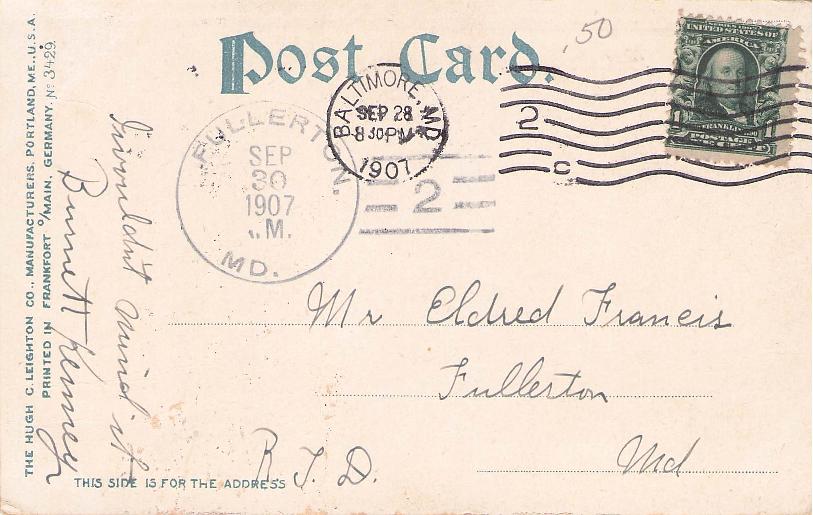 Post Card.
.50
UNITED STATES OF
AMERICA
FRANKLIN
POSTAGE
1
BALTIMORE, MD
SEP 28
830PM
1907
2
C
FULLERTON.
SEP
30
1907
M.
MD.
2
Mr Eldred Francis
Fullerton
Md
R. F. D.
THIS SIDE IS FOR THE ADDRESS
I wouldn't mind it
Kenney
THE HUGH C. LEIGHTON CO., MANUFACTURERS, PORTLAND, ME., U.S.A.
PRINTED IN FRANKFORT o/MAIN, GERMANY. No 3429.